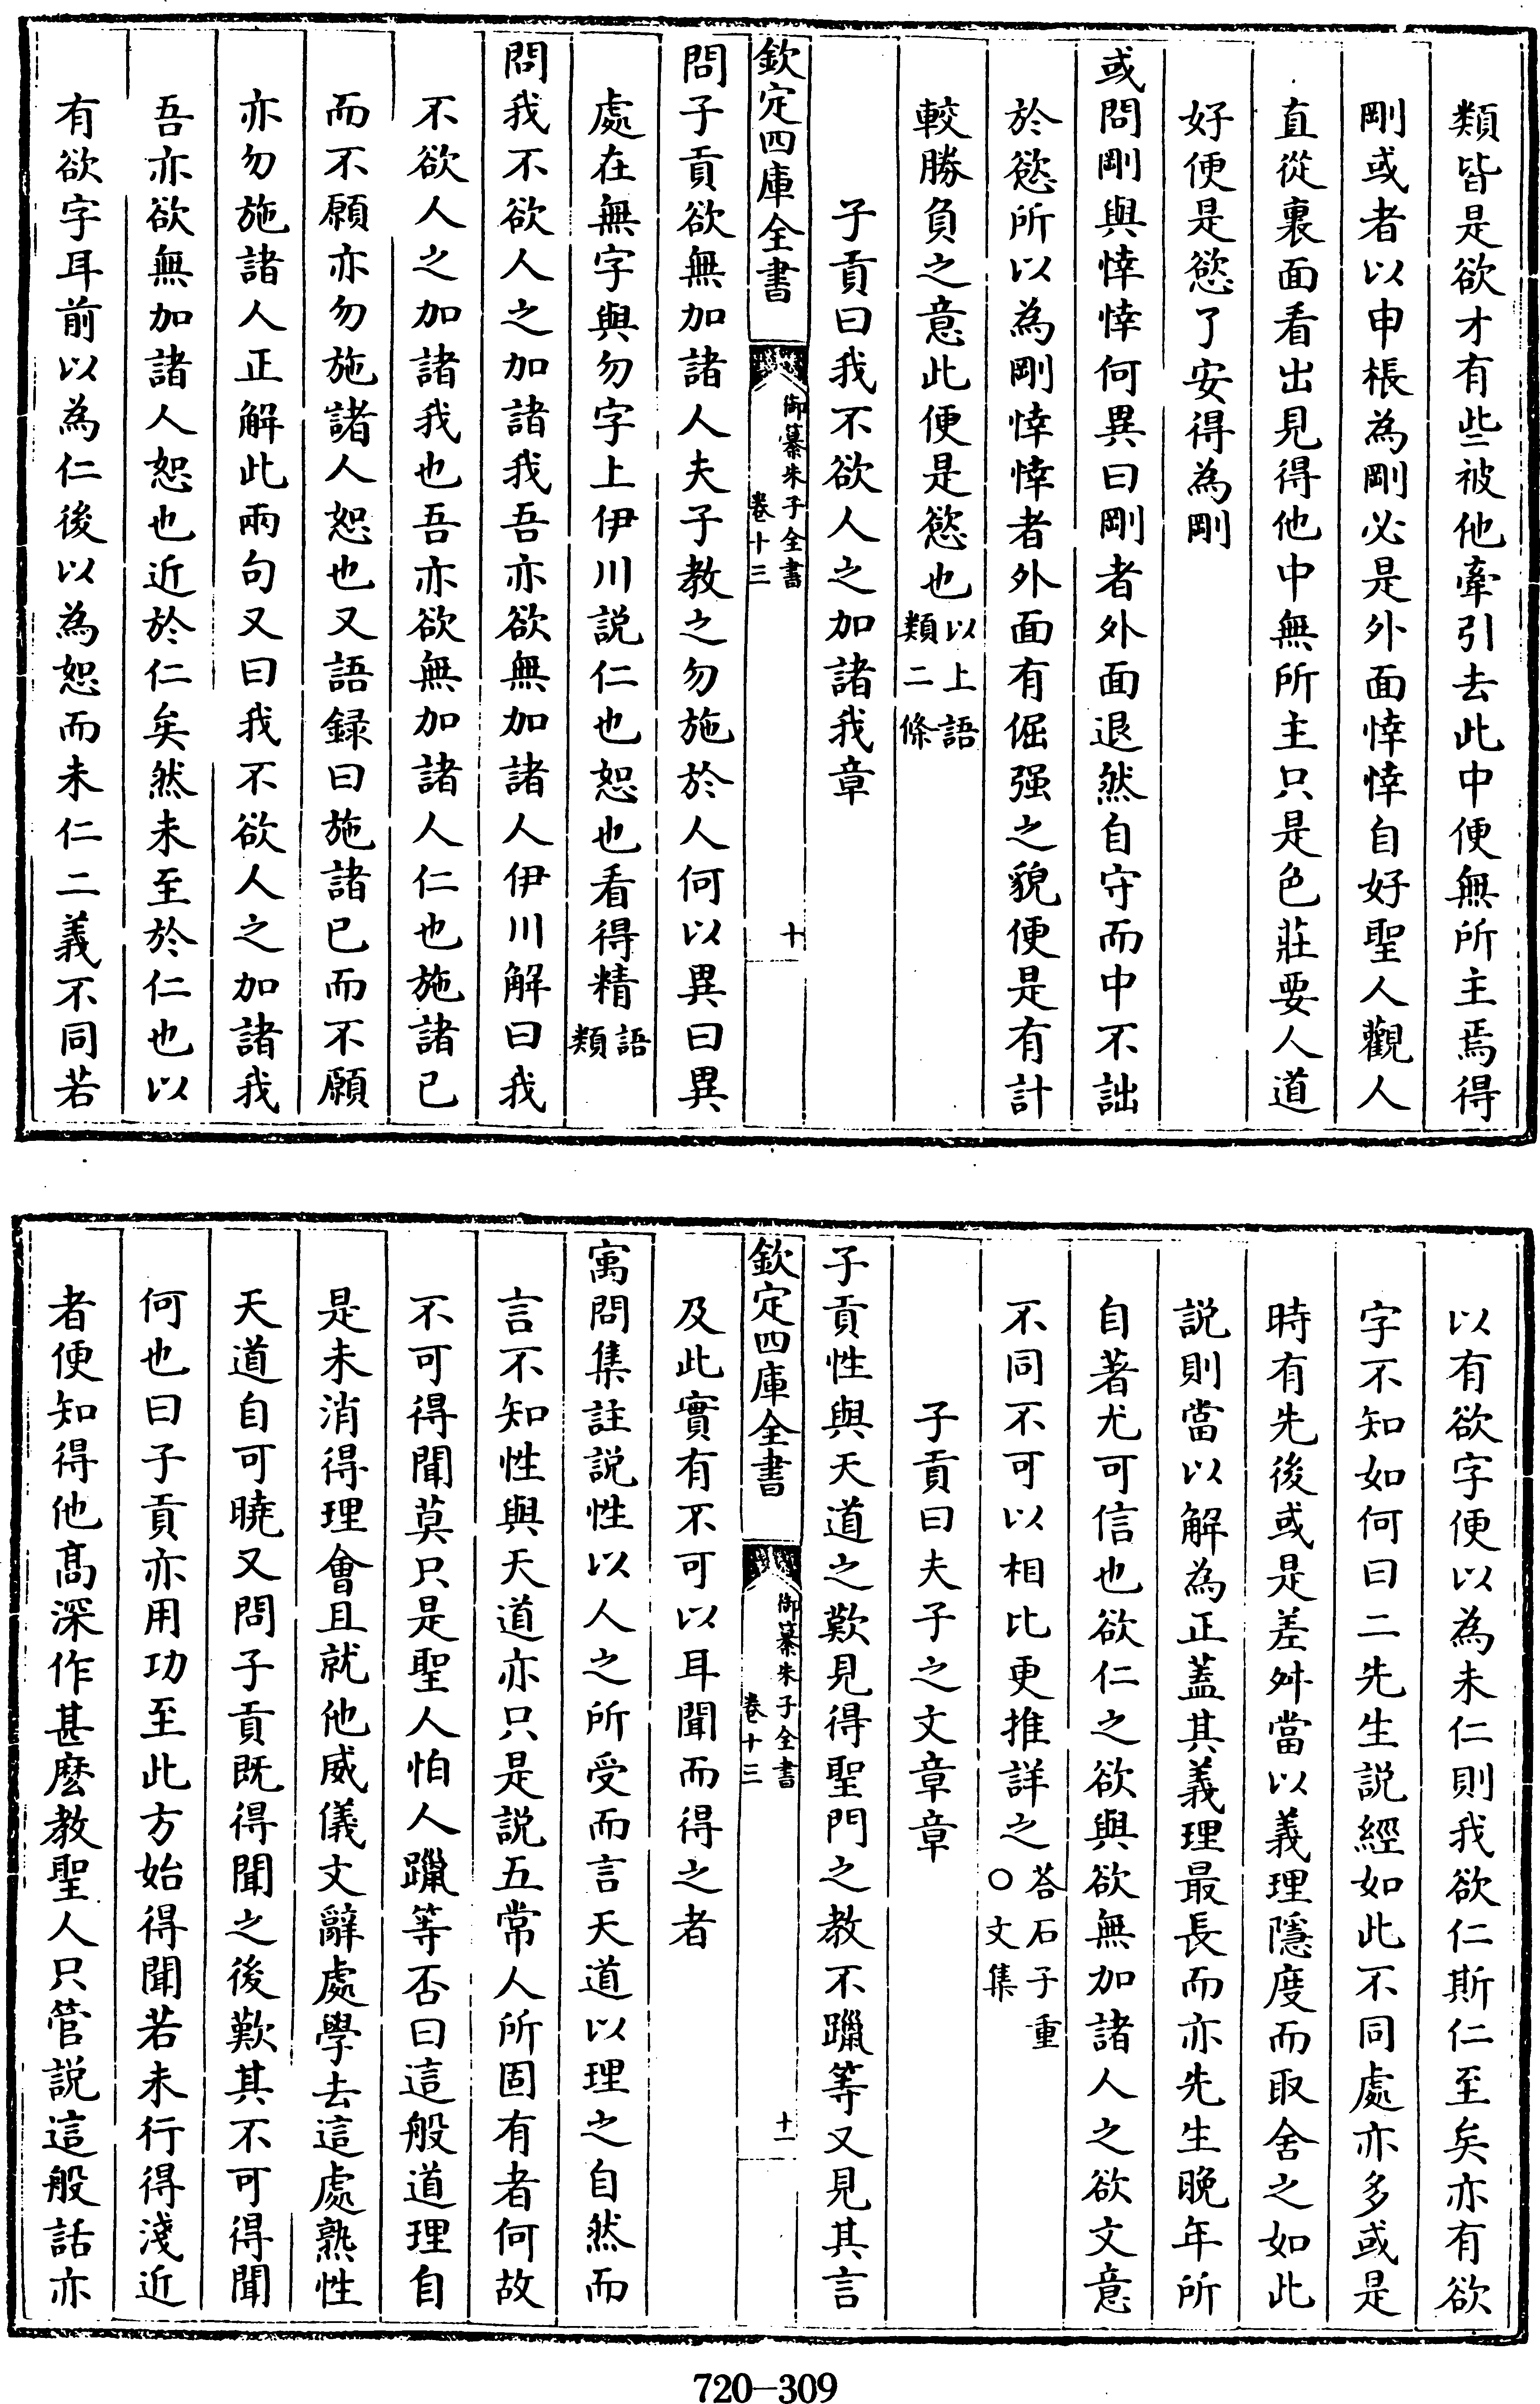 類皆是欲才有些被他牽引去此中便無所主焉得
剛或者以申棖為剛必是外面悻悻自好聖人觀人
直從裏面看出見得他中無所主只是色莊要人道
好便是慾了安得為剛
或問剛與悻悻何異曰剛者外面退然自守而中不詘
於慾所以為剛悻悻者外面有倔强之貌便是有計
較勝負之意此便是慾也以上語類二條
子貢曰我不欲人之加諸我章
欽定四庫全書
御纂朱子全書
卷十三
十
問子貢欲無加諸人夫子教之勿施於人何以異曰異
處在無字與勿字上伊川説仁也恕也看得精語類
問我不欲人之加諸我吾亦欲無加諸人伊川解曰我
不欲人之加諸我也吾亦欲無加諸人仁也施諸已
而不願亦勿施諸人恕也又語録曰施諸已而不願
亦勿施諸人正解此兩句又曰我不欲人之加諸我
吾亦欲無加諸人恕也近於仁矣然未至於仁也以
有欲字耳前以為仁後以為恕而未仁二義不同若
以有欲字便以為未仁則我欲仁斯仁至矣亦有欲
字不知如何曰二先生説經如此不同處亦多或是
時有先後或是差舛當以義理隱度而取舍之如此
説則當以解為正蓋其義理最長而亦先生晚年所
自著尤可信也欲仁之欲與欲無加諸人之欲文意
不同不可以相比更推詳之答石子重○文集
子貢曰夫子之文章章
子貢性與天道之歎見得聖門之教不躐等又見其言
欽定四庫全書
御纂朱子全書
卷十三
十一
及此實有不可以耳聞而得之者
寓問集註説性以人之所受而言天道以理之自然而
言不知性與天道亦只是説五常人所固有者何故
不可得聞莫只是聖人怕人躐等否曰這般道理自
是未消得理會且就他威儀文辭處學去這處熟性
天道自可曉又問子貢既得聞之後歎其不可得聞
何也曰子貢亦用功至此方始得聞若未行得淺近
者便知得他髙深作甚麽教聖人只管説這般話亦
720-309